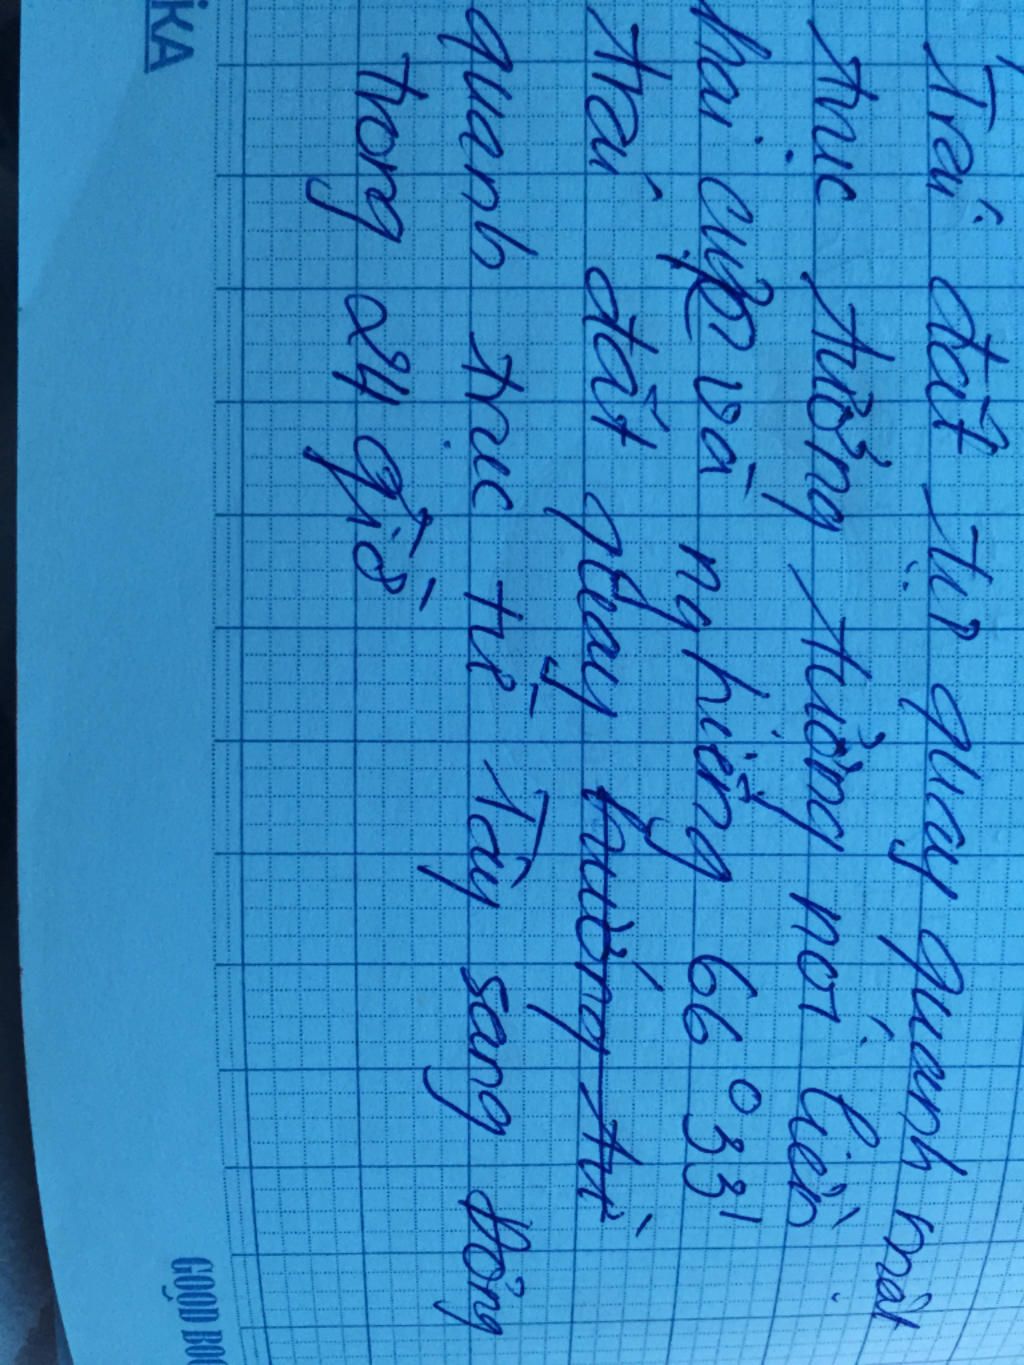 Trái đất tự quay quanh một
trục tưởng tượng nối liền
hai cực và nghiêng 66°33'
trái đất quay hướng từ
quanh trục từ Tây sang Đông
trong 24 giờ
GOOD BOO